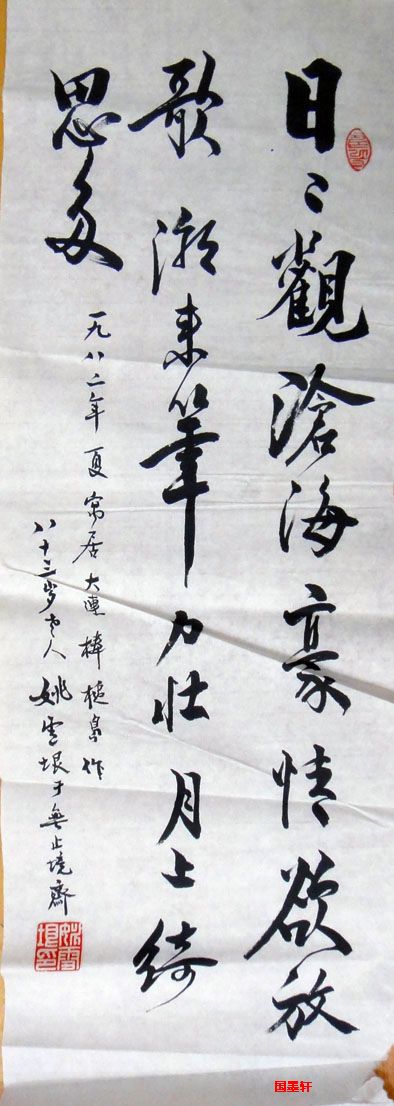 日〻觀滄海豪情欲放
歌潮来筆力壮月上綺
思多
一九八二年夏寓居大連棒槌島作
八十三岁老人姚雪垠于無止境齋
姚雪垠印
国墨轩